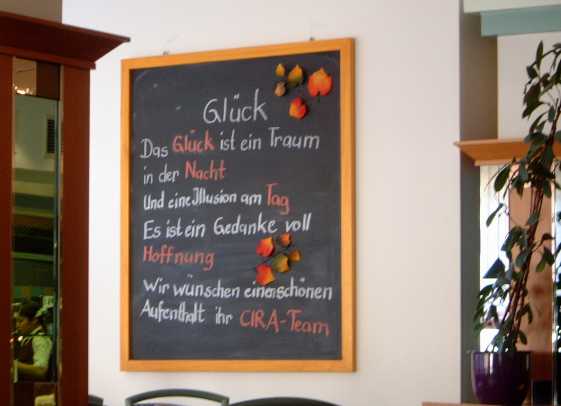 Glück
Das Glück ist ein Traum
in der Nacht
Und eine Illusion am Tag
Es ist ein Gedanke voll
Hoffnung
Wir wünschen einen schönen
Aufenthalt ihr CIRA-Team